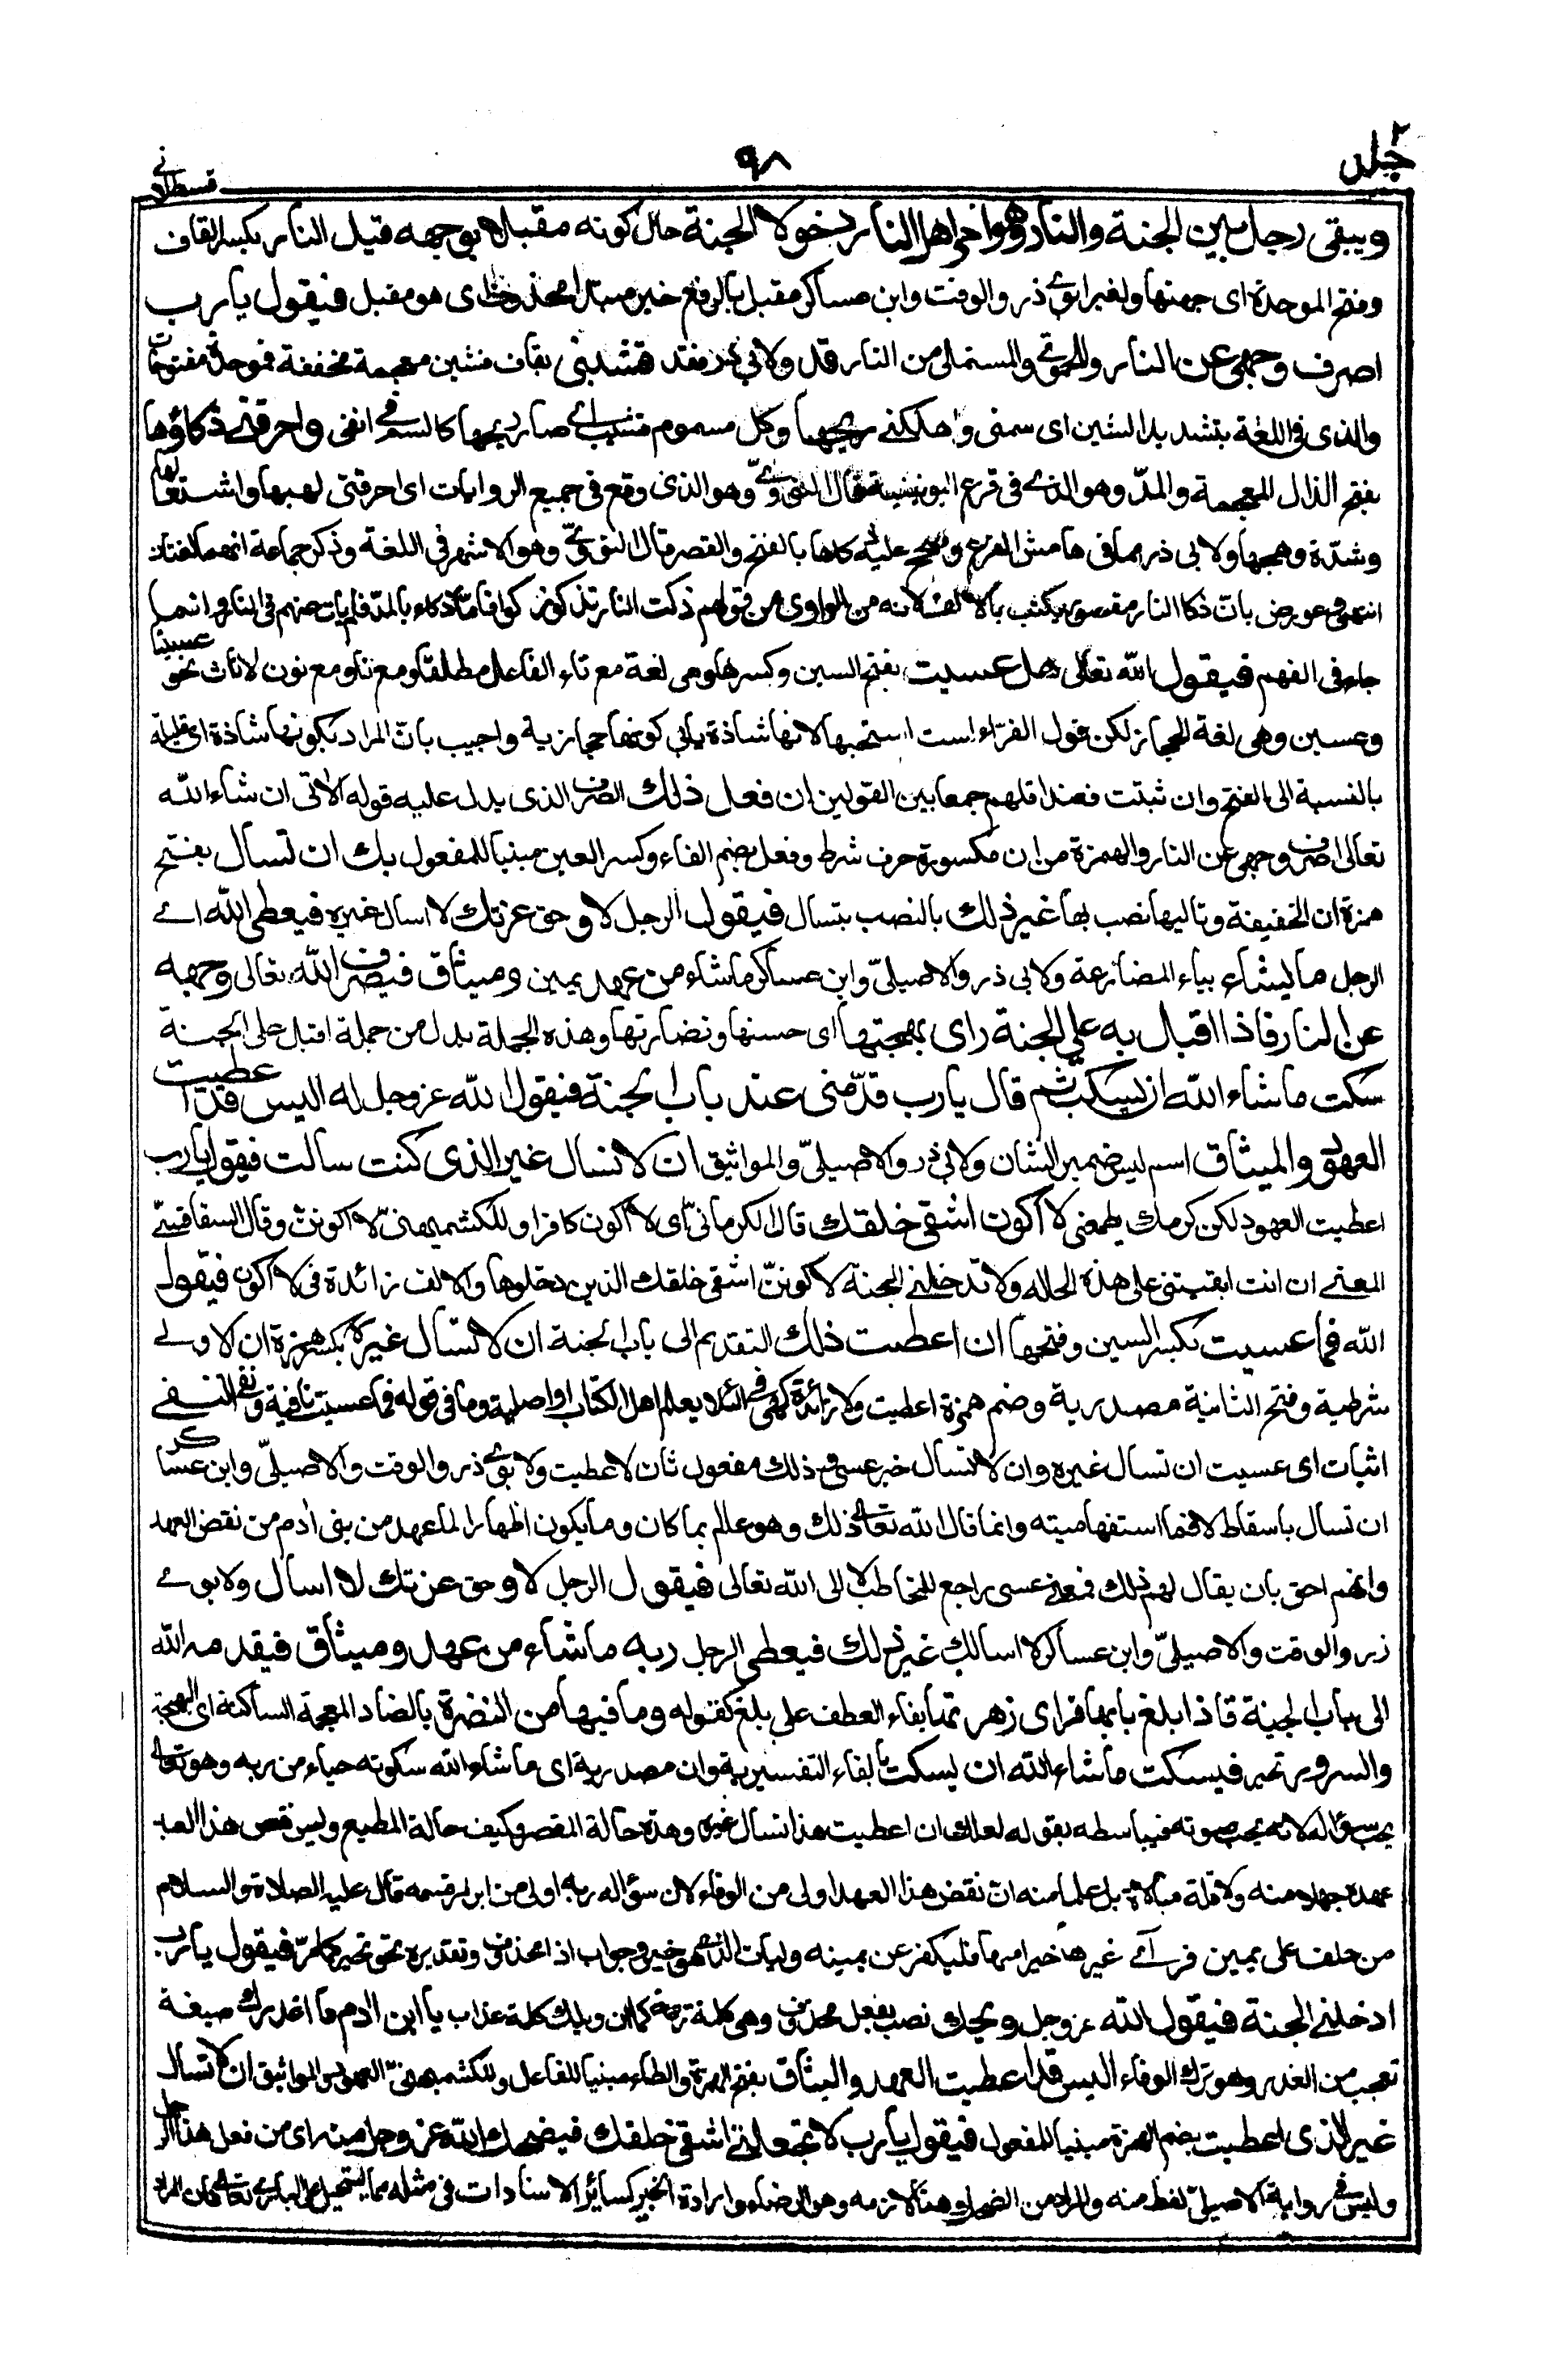 جلد ٢
٩٨
قسطلانى
ويبقى رجل بين الجنة والنار وهو اخر اهل النار دخولا الجنة حال كونه مقبلا بوجهه قبل النار بكسر القاف
وفتح الموحدة اى جهتها ولغير ابوى ذر والوقت وابن عساكر مقبل بالرفع خبر مبتدا محذوف اى هو مقبل فيقول يارب
اصرف وجهى عن النار وللحموى والمستملى من النار قد ولابى ذر فقد قشبنى بقاف فشين معجمة مخففة فموحدة مفتوحات
والذى فى اللغة بتشديد الشين اى سمنى واهلكنى ريحها وكل مسموم قشيب اى صار ريحها كالسم فى انفى واحرقنى ذكاؤها
بفتح الذال المعجمة والمدّ وهو الذى فى فرع اليونينية قال النووى وهو الذى وقع فى جميع الروايات اى احرقنى لهبها واشتعالها
وشدّة وهجها ولابى ذر مما فى هامش الفرع وصحح عليه ذكاها بالفتح والقصر قال النووىّ وهو الاشهر فى اللغة وذكر جماعة انهما لغتان
انتهى وعورض بانّ ذكا النار مقصور يكتب بالالف لانه من الواوى من قولهم ذكت النار تذكو ذكوا فامّا ذكاء بالمدّ فلم يات عنهم فى النار وانما
جاء فى الفهم فيقول الله تعالى هل عسيت بفتح السين وكسرها وهى لغة مع تاء الفاعل مطلقا ومع نا ومع نون الاناث نحو عسينا
وعسين وهى لغة الحجاز لكن قول الفرّاء لست استحبها لانها شاذة يابى كونها حجازية واجيب بانّ المراد بكونها شاذة اى قليلة
بالنسبة الى الفتح وان ثبتت فعند اقلهم جمعا بين القولين ان فعل ذلك الصرف الذى يدل عليه قوله الاتى ان شاء الله
تعالى اصرف وجهى عن النار والهمزة من ان مكسورة حرف شرط وفعل بضم الفاء وكسر العين مبنيا للمفعول بك ان تسال بفتح
همزة ان الخفيفة وتاليها نصب بها غير ذلك بالنصب بتسال فيقول الرجل لا وحق عزتك لا اسال غيره فيعطى الله اى
الرجل ما يشاء بياء المضارعة ولابى ذر والاصيلىّ وابن عساكر ما شاء من عهد يمين وميثاق فيصرف الله تعالى وجهه
عن النار فاذا اقبل به على الجنة راى بهجتها اى حسنها ونضارتها وهذه الجملة بدل من جملة اقبل على الجنة
سكت ما شاء الله ان يسكت ثم قال يارب قدّمنى عند باب الجنة فيقول الله عز وجل له اليس قد اعطيت
العهود والميثاق اسم ليس ضمير الشان ولابى ذر والاصيلىّ والمواثيق ان لا تسال غير الذى كنت سالت فيقول يارب
اعطيت العهود لكن كرمك يطمعنى لا اكون اشقى خلقك قال الكرمانىّ اى لا اكون كافرا وللكشميهنىّ لا اكونن وقال السفاقسىّ
المعنى ان انت ابقيتنى على هذه الحاله ولا تدخلنى الجنة لاكوننّ اشقى خلقك الذين دخلوها والالف زائدة فى لا اكون فيقول
الله فما عسيت بكسر السين وفتحها ان اعطيت ذلك التقديم الى باب الجنة ان لا تسال غيره بكسر همزة ان الاولى
شرطية وفتح الثانية مصدرية وضم همزة اعطيت ولا زائدة كهى فى لئلا يعلم اهل الكتاب او اصلية وما فى قوله فما عسيت نافية ونفى النفى
اثبات اى عسيت ان تسال غيره وان لا تسال خبر عسى وذلك مفعول ثان لاعطيت ولابوى ذر والوقت والاصيلىّ وابن عساكر
ان تسال باسقاط لا فما استفهامية وانما قال الله تعالى ذلك وهو عالم بما كان وما يكون اظهارا لما عهد من بنى ادم من نقض العهد
وانهم احق بان يقال لهم ذلك فمعنى عسى راجع للمخاطب لا الى الله تعالى فيقول الرجل لا وحق عزتك لا اسال ولابوى
ذر والوقت والاصيلىّ وابن عساكر لا اسالك غير ذلك فيعطى الرجل ربه ما شاء من عهد وميثاق فيقدمه الله
الى باب الجنة فاذا بلغ بابها فراى زهرتها بفاء العطف على بلغ كقوله وما فيها من النضرة بالضاد المعجمة الساكنة اى البهجة
والسرور تحير فيسكت ما شاء الله ان يسكت بالفاء التفسيرية وان مصدرية اى ما شاء الله سكوته حياء من ربه وهو تعالى
يحب سؤاله لانه يحب صوته فيباسطه بقوله لعلك ان اعطيت هذا تسال غيره وهذه حالة المقصر وكيف حالة المطيع وليس نقض هذا العبد
عهده جهلا منه ولا قلة مبالاة بل علما منه انّ نقض هذا العهد اولى من الوفاء لان سؤاله ربه اولى من ابرار قسمه قال عليه الصلاة والسلام
من حلف على يمين فراى غيرها خيرا منها فليكفر عن يمينه وليات الذى هو خير وجواب اذا محذوف وتقديره نحو تحير كما مرّ فيقول يارب
ادخلنى الجنة فيقول الله عز وجل ويحك نصب بفعل محذوف وهى كلمة ترحم كما ان ويلك كلمة عذاب يا ابن ادم ما اغدرك صيغة
تعجب من الغدر وهو ترك الوفاء اليس قد اعطيت العهد والميثاق بفتح الهمزة والطاء مبنيا للفاعل وللكشميهنىّ العهود والمواثيق ان لا تسال
غير الذى اعطيت بضم الهمزة مبنيا للمفعول فيقول يارب لا تجعلنى اشقى خلقك فيضحك الله عز وجل منه اى من فعل هذا الرجل
وليس فى رواية الاصيلىّ لفظ منه والمراد من الضحك هنا لازمه وهو الرضاء وارادة الخير كسائر الاسنادات فى مثله مما يستحيل على البارى تعالى فان المراد